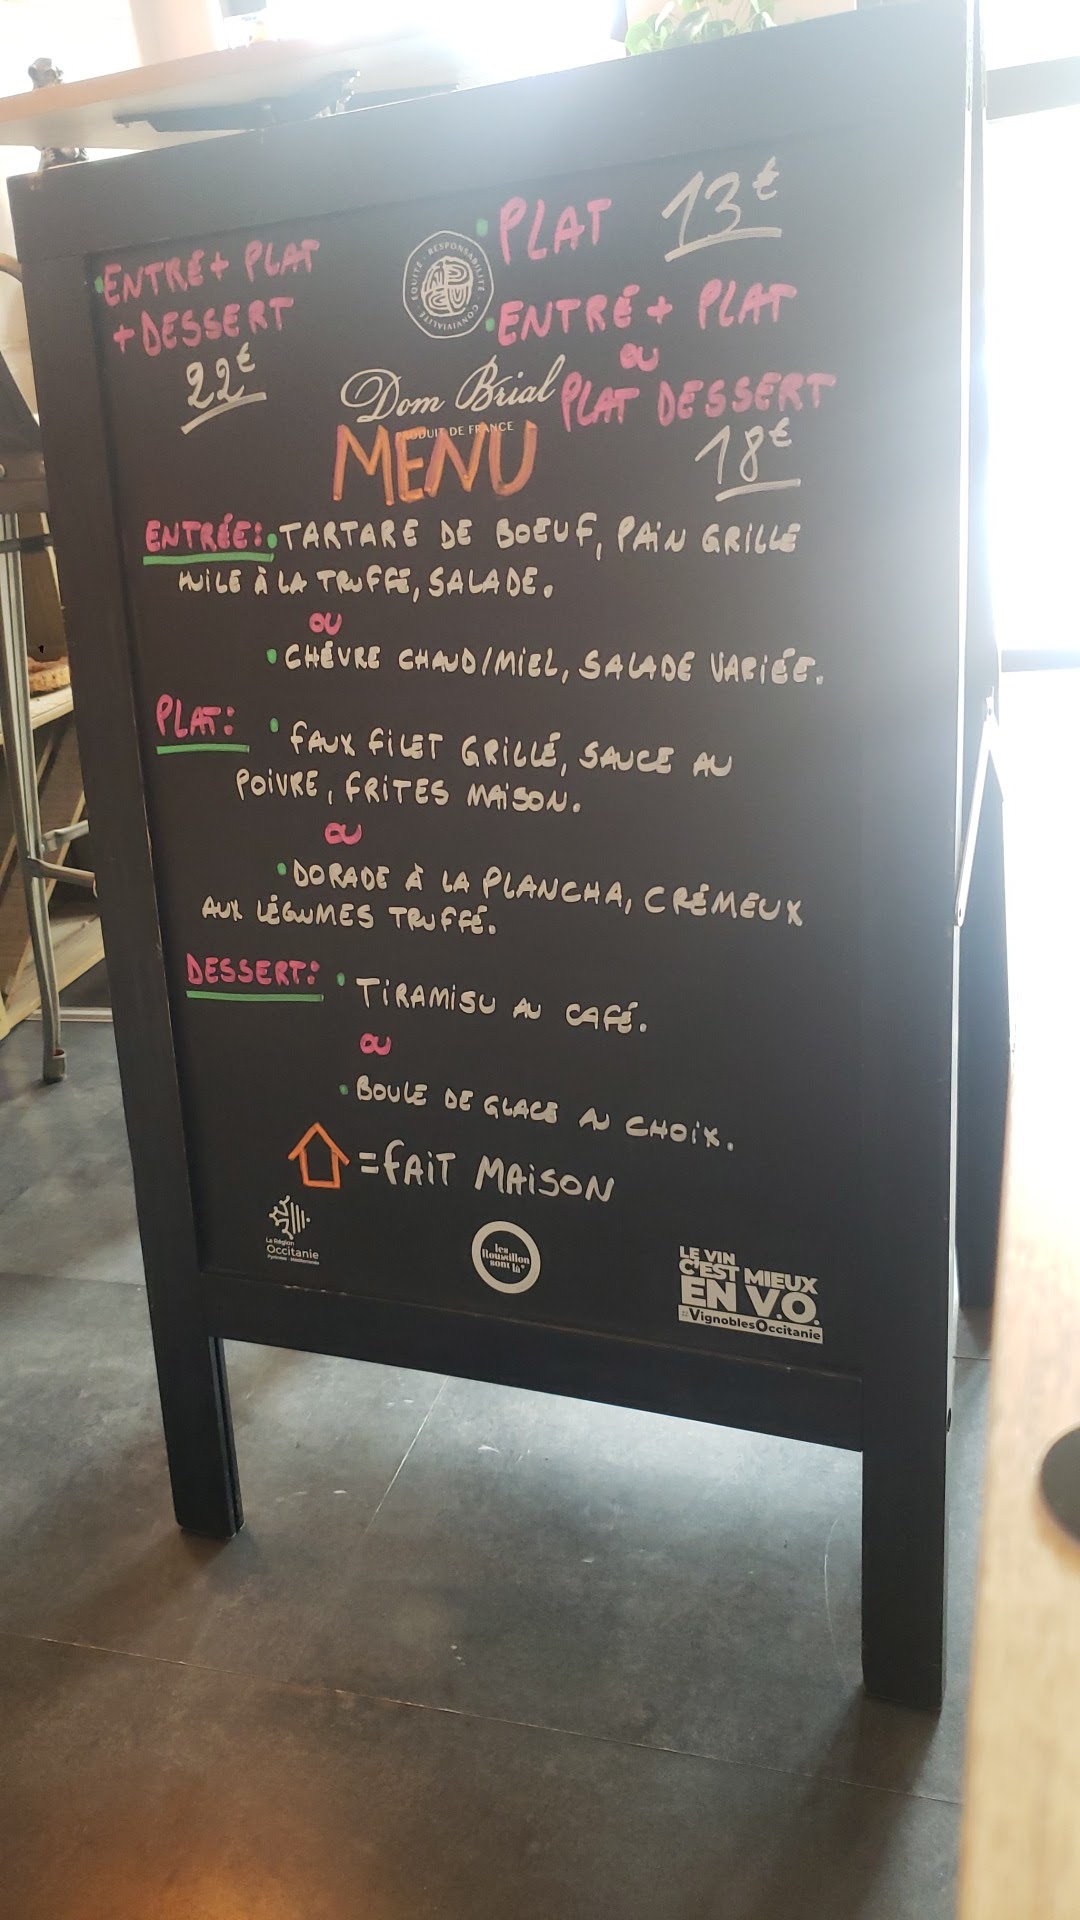 ENTRÉ + PLAT
+ DESSERT
22€
ÉQUITÉ · RESPONSABILITÉ · CONVIVIALITÉ
Dom Brial
PRODUIT DE FRANCE
PLAT 13€
ENTRÉ + PLAT
OU
PLAT DESSERT
18€
MENU
ENTRÉE: TARTARE DE BOEUF, PAIN GRILLE
HUILE À LA TRUFFE, SALADE.
OU
CHÉVRE CHAUD/MIEL, SALADE VARIÉE.
PLAT: FAUX FILET GRILLÉ, SAUCE AU
POIVRE, FRITES MAISON.
OU
DORADE À LA PLANCHA, CRÉMEUX
AUX LÉGUMES TRUFFÉ.
DESSERT: TIRAMISU AU CAFÉ.
OU
BOULE DE GLACE AU CHOIX.
= FAIT MAISON
La Région
Occitanie
Pyrénées - Méditerranée
les
Roussillon
sont là*
LE VIN
C'EST MIEUX
EN V.O.
#VignoblesOccitanie